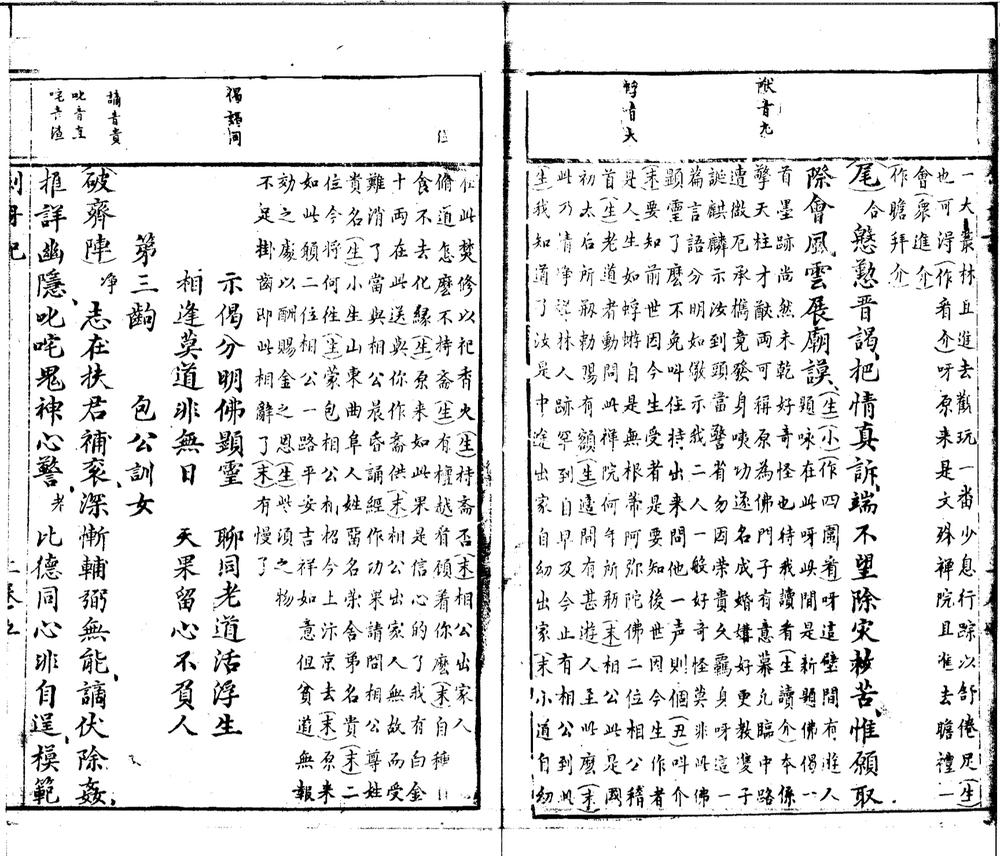 猷音尤
蜉音夫
一大叢林且進去觀玩一番少息行踪以舒倦足(生)
也可淂(作看介)呀原来是文殊禪院且進去瞻禮一
會(衆進介)
作瞻拜介
尾合慇懃晋謁把情真訴端不望除灾救苦惟願取
際會風雲展廟謨(生)(小)作四圍看呀這壁間有遊人
題咏在此呀昃間是新題佛偈一
首墨跡尚然未乾好奇怪也待我讀看(生讀介)本係
擎天柱才猷両可稱原為佛門子有意慕九臨中路
遭做厄承撟竟發身唊功逐名成婚媾好更教双一子
誕麒麟示汝到頭當警省勿因荣貴久羈身呀這一
篇言語分明如儆示我二人一般好奇怪莫非此佛
顕霊了麽不免呌住持出来問他一声則個(丑)呌介
(末)要知前世因今生受者是要知後世因今生作者
是人生如蜉蝣自是無根蒂阿弥陀佛二位相公稽
首(生)老道者動問此禪院何年所剏(末)相公此是國
初太后所剏勅賜有額(生)這間有甚遊人至此麽(末)
此乃清淨禪林人跡罕到自早及今止有相公到此
(生)我知道了汝是中途出家自幼出家(末)小道自幼
在此焚修以祀香火(生)持斋否(末)相公出家人
偷道怎麽不持斋(生)有檀越看顧着你麽(末)自種自
食不去化緣(生)原来如此果是信心的了我有白金
十両在此送與你作斋供(末)相公出家人無故而受
難消了當與相公晨昏誦經作功果請問相公尊姓
貴名(生)小生山東曲阜人姓畱名荣舍弟名貴(末)二
位今將何徃(生)蒙包相公相招今上汴京去(末)原来
如此頋二位相公一路平安吉祥如意但貧道無報
効之處以酬賜金之恩(生)些須之物
不足掛齒即此相辭了(末)有慢了
獨頭同
示偈分明佛顕霊 聊同老道活浮生
相逢莫道非無日 天果留心不負人
第三齣 包公訓女
誦音貴
叱音尺
咤音渣
(破齊陣)净志在扶君補衮深慚輔弼無能謫伏除姦
推詳幽隱叱咤鬼神心警老比德同心非自逞模範